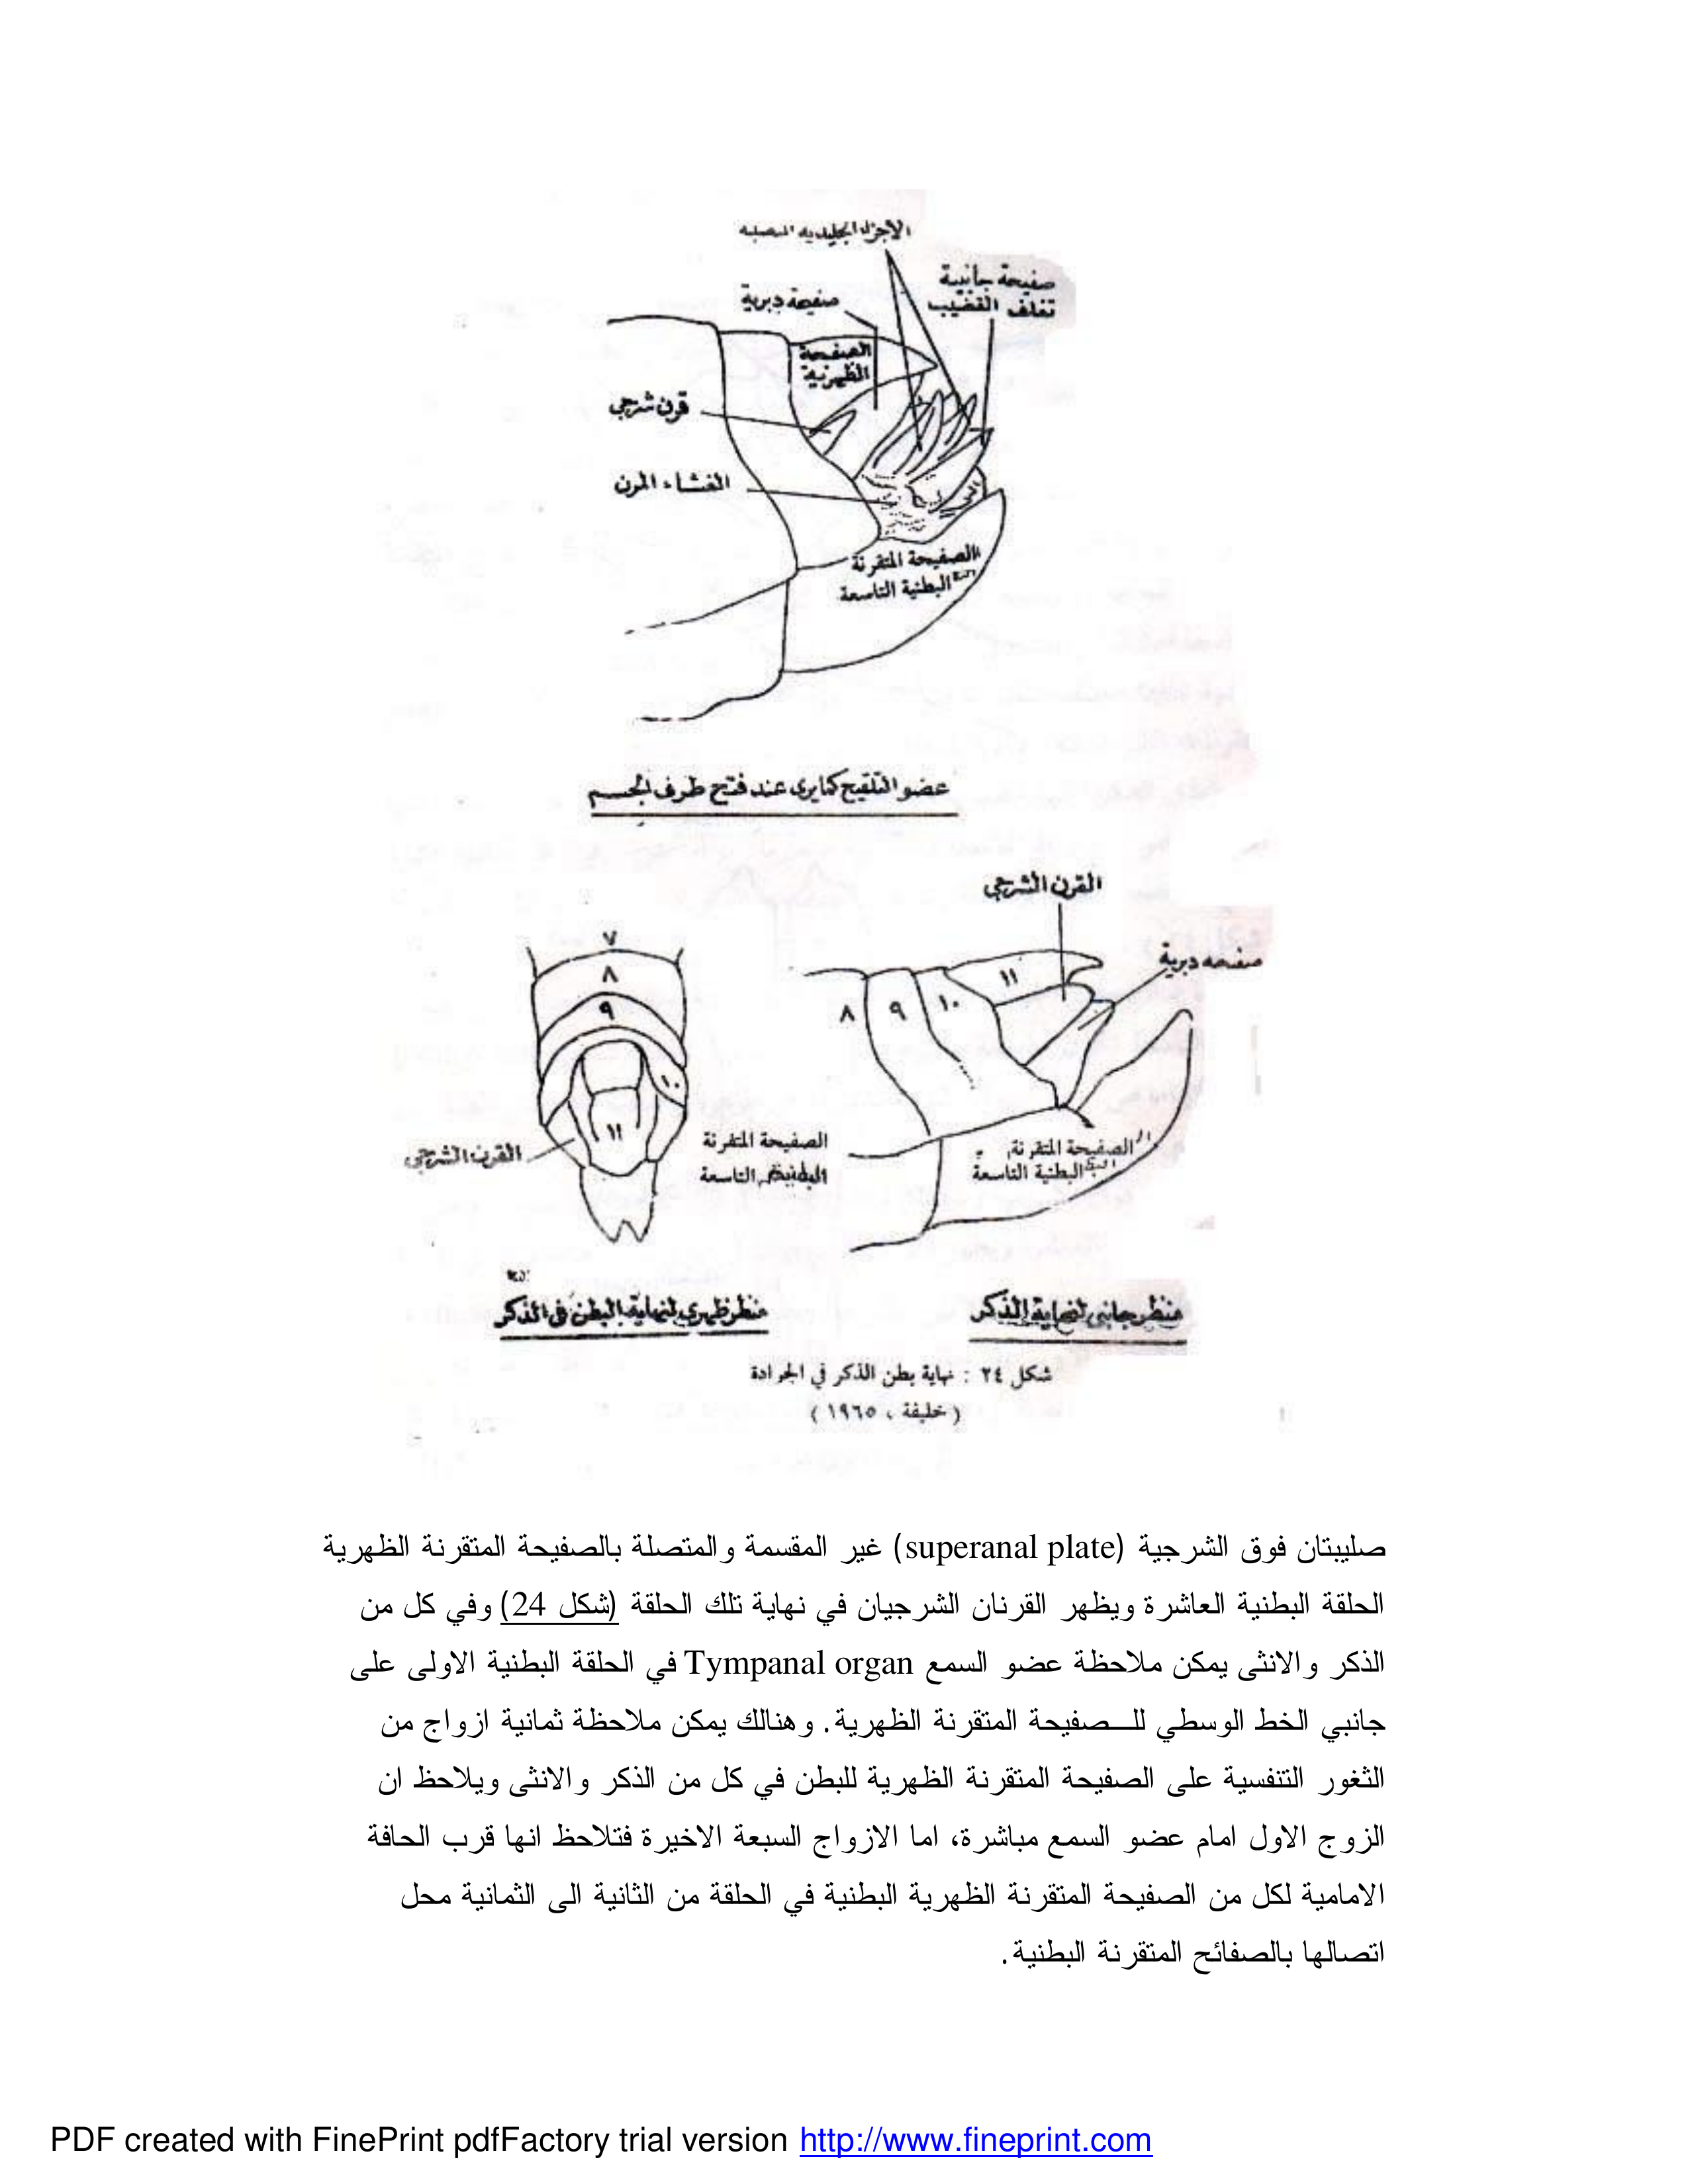 الاجزاء الجليدية
صفيحة جانبية
تغلف القضيب
صفيحة دبرية
الصفيحة
الظهرية
قرن شرجي
الغشاء المرن
الصفيحة المتقرنة
البطنية التاسعة
عضو التلقيح كما يرى عند فتح طرف الجسم
القرن الشرجي
صفيحه دبرية
٧
٨
٩
١٠
١١
٨
٩
١٠
١١
القرن الشرجي
الصفيحة المتقرنة
البطنية التاسعة
الصفيحة المتقرنة
البطنية التاسعة
منظر ظهري لنهاية البطن في الذكر
منظر جانبي لنهاية الذكر
شكل ٢٤ : نهاية بطن الذكر في الجرادة
( خليفة ، ١٩٦٥ )
صليبتان فوق الشرجية (superanal plate) غير المقسمة والمتصلة بالصفيحة المتقرنة الظهرية
الحلقة البطنية العاشرة ويظهر القرنان الشرجيان في نهاية تلك الحلقة (شكل 24) وفي كل من
الذكر والانثى يمكن ملاحظة عضو السمع Tympanal organ في الحلقة البطنية الاولى على
جانبي الخط الوسطي للـــصفيحة المتقرنة الظهرية. وهنالك يمكن ملاحظة ثمانية ازواج من
الثغور التنفسية على الصفيحة المتقرنة الظهرية للبطن في كل من الذكر والانثى ويلاحظ ان
الزوج الاول امام عضو السمع مباشرة، اما الازواج السبعة الاخيرة فتلاحظ انها قرب الحافة
الامامية لكل من الصفيحة المتقرنة الظهرية البطنية في الحلقة من الثانية الى الثمانية محل
اتصالها بالصفائح المتقرنة البطنية.
PDF created with FinePrint pdfFactory trial version http://www.fineprint.com